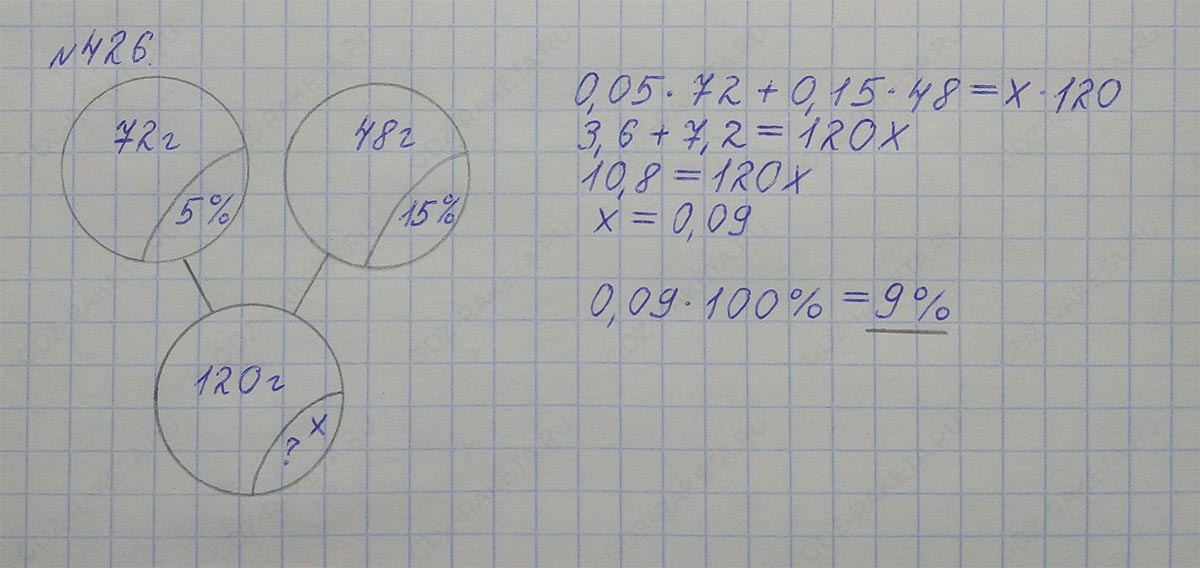 №426.
72г
5%
48г
15%
120г
? x
0,05 · 72 + 0,15 · 48 = x · 120
3,6 + 7,2 = 120x
10,8 = 120x
x = 0,09
0,09 · 100% = 9%